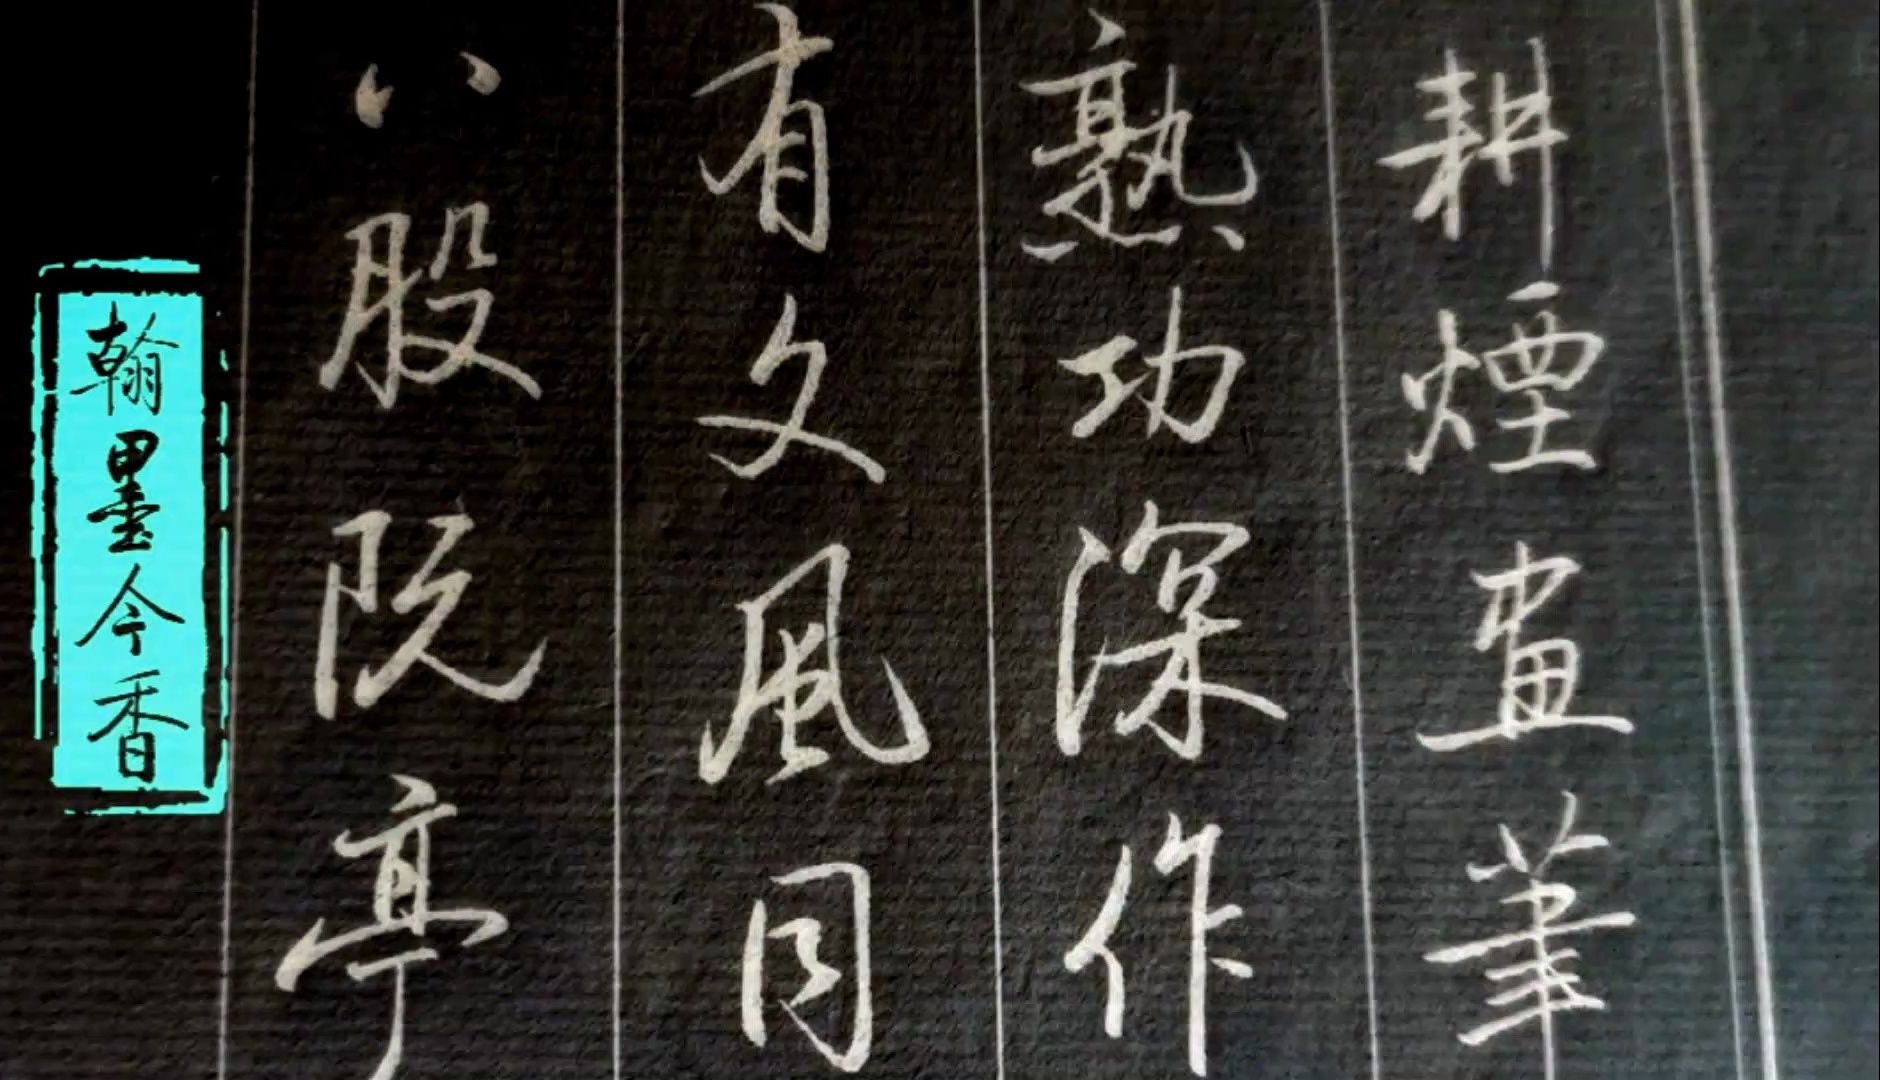 耕煙畫筆
熟功深作
有文風同
八股阮亭
翰墨今香